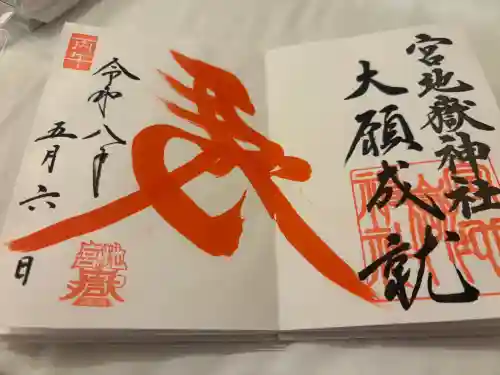 宮地嶽神社
大願成就
丙午
令和八年
五月六日
宮地嶽